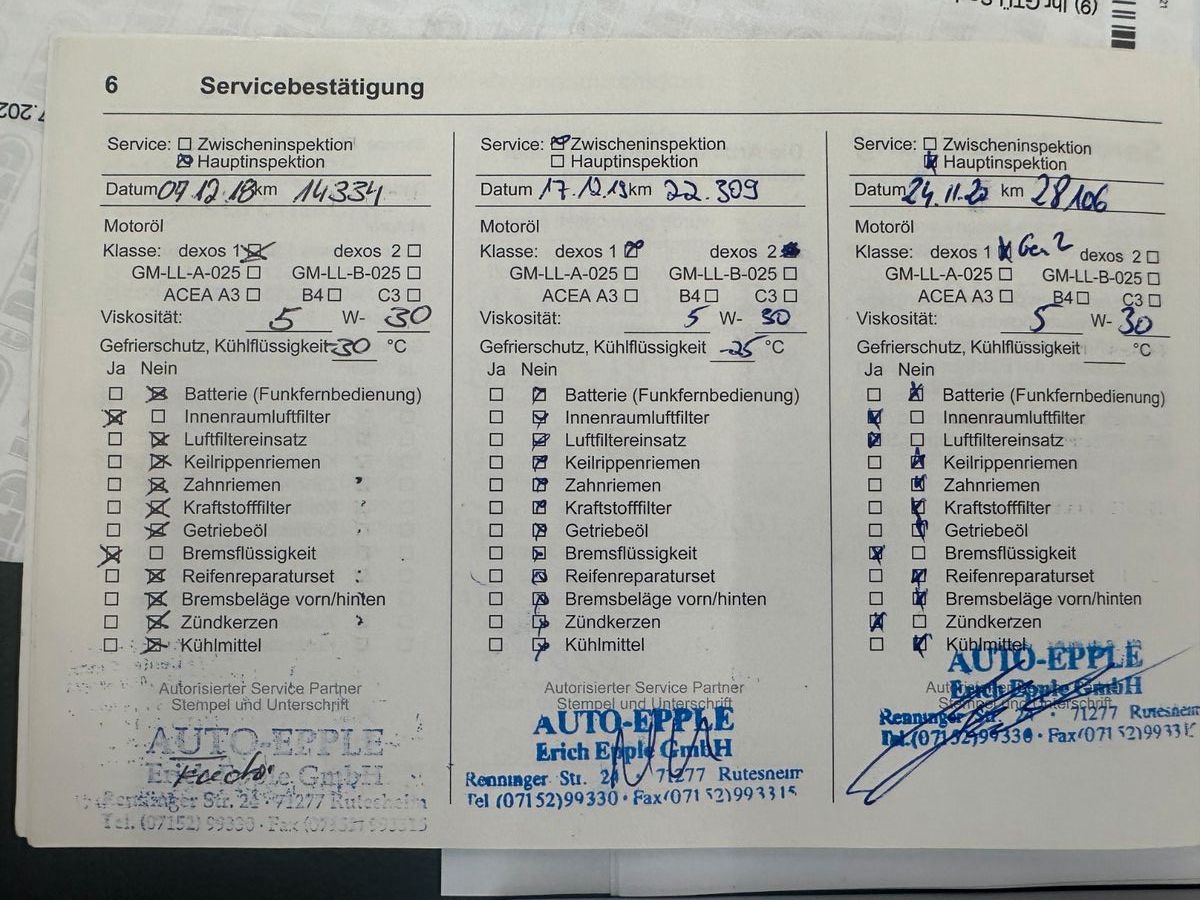 (9) Ihr GTÜ
7.202
6 Servicebestätigung
Service: Zwischeninspektion
Hauptinspektion
Datum 07.12.18 km 14334
Motoröl
Klasse: dexos 1 dexos 2
GM-LL-A-025 GM-LL-B-025
ACEA A3 B4 C3
Viskosität: 5 W- 30
Gefrierschutz, Kühlflüssigkeit -30 °C
Ja Nein
Batterie (Funkfernbedienung)
Innenraumluftfilter
Luftfiltereinsatz
Keilrippenriemen
Zahnriemen
Kraftstofffilter
Getriebeöl
Bremsflüssigkeit
Reifenreparaturset
Bremsbeläge vorn/hinten
Zündkerzen
Kühlmittel
Autorisierter Service Partner
Stempel und Unterschrift
AUTO-EPPLE
Erich Epple GmbH
Renninger Str. 24 · 71277 Rutesheim
Tel. (07152) 99330 · Fax (07152) 993315
Service: Zwischeninspektion
Hauptinspektion
Datum 17.12.19 km 22.309
Motoröl
Klasse: dexos 1 dexos 2
GM-LL-A-025 GM-LL-B-025
ACEA A3 B4 C3
Viskosität: 5 W- 30
Gefrierschutz, Kühlflüssigkeit -25 °C
Ja Nein
Batterie (Funkfernbedienung)
Innenraumluftfilter
Luftfiltereinsatz
Keilrippenriemen
Zahnriemen
Kraftstofffilter
Getriebeöl
Bremsflüssigkeit
Reifenreparaturset
Bremsbeläge vorn/hinten
Zündkerzen
Kühlmittel
Autorisierter Service Partner
Stempel und Unterschrift
AUTO-EPPLE
Erich Epple GmbH
Renninger Str. 24 · 71277 Rutesheim
Tel (07152)99330 · Fax (07152)993315
Service: Zwischeninspektion
Hauptinspektion
Datum 24.11.20 km 28106
Motoröl
Klasse: dexos 1 Gen 2 dexos 2
GM-LL-A-025 GM-LL-B-025
ACEA A3 B4 C3
Viskosität: 5 W- 30
Gefrierschutz, Kühlflüssigkeit °C
Ja Nein
Batterie (Funkfernbedienung)
Innenraumluftfilter
Luftfiltereinsatz
Keilrippenriemen
Zahnriemen
Kraftstofffilter
Getriebeöl
Bremsflüssigkeit
Reifenreparaturset
Bremsbeläge vorn/hinten
Zündkerzen
Kühlmittel
Stempel und Unterschrift
AUTO-EPPLE
Erich Epple GmbH
Renninger Str. 24 · 71277 Rutesheim
Tel.(07152)99330 · Fax(07152)99331